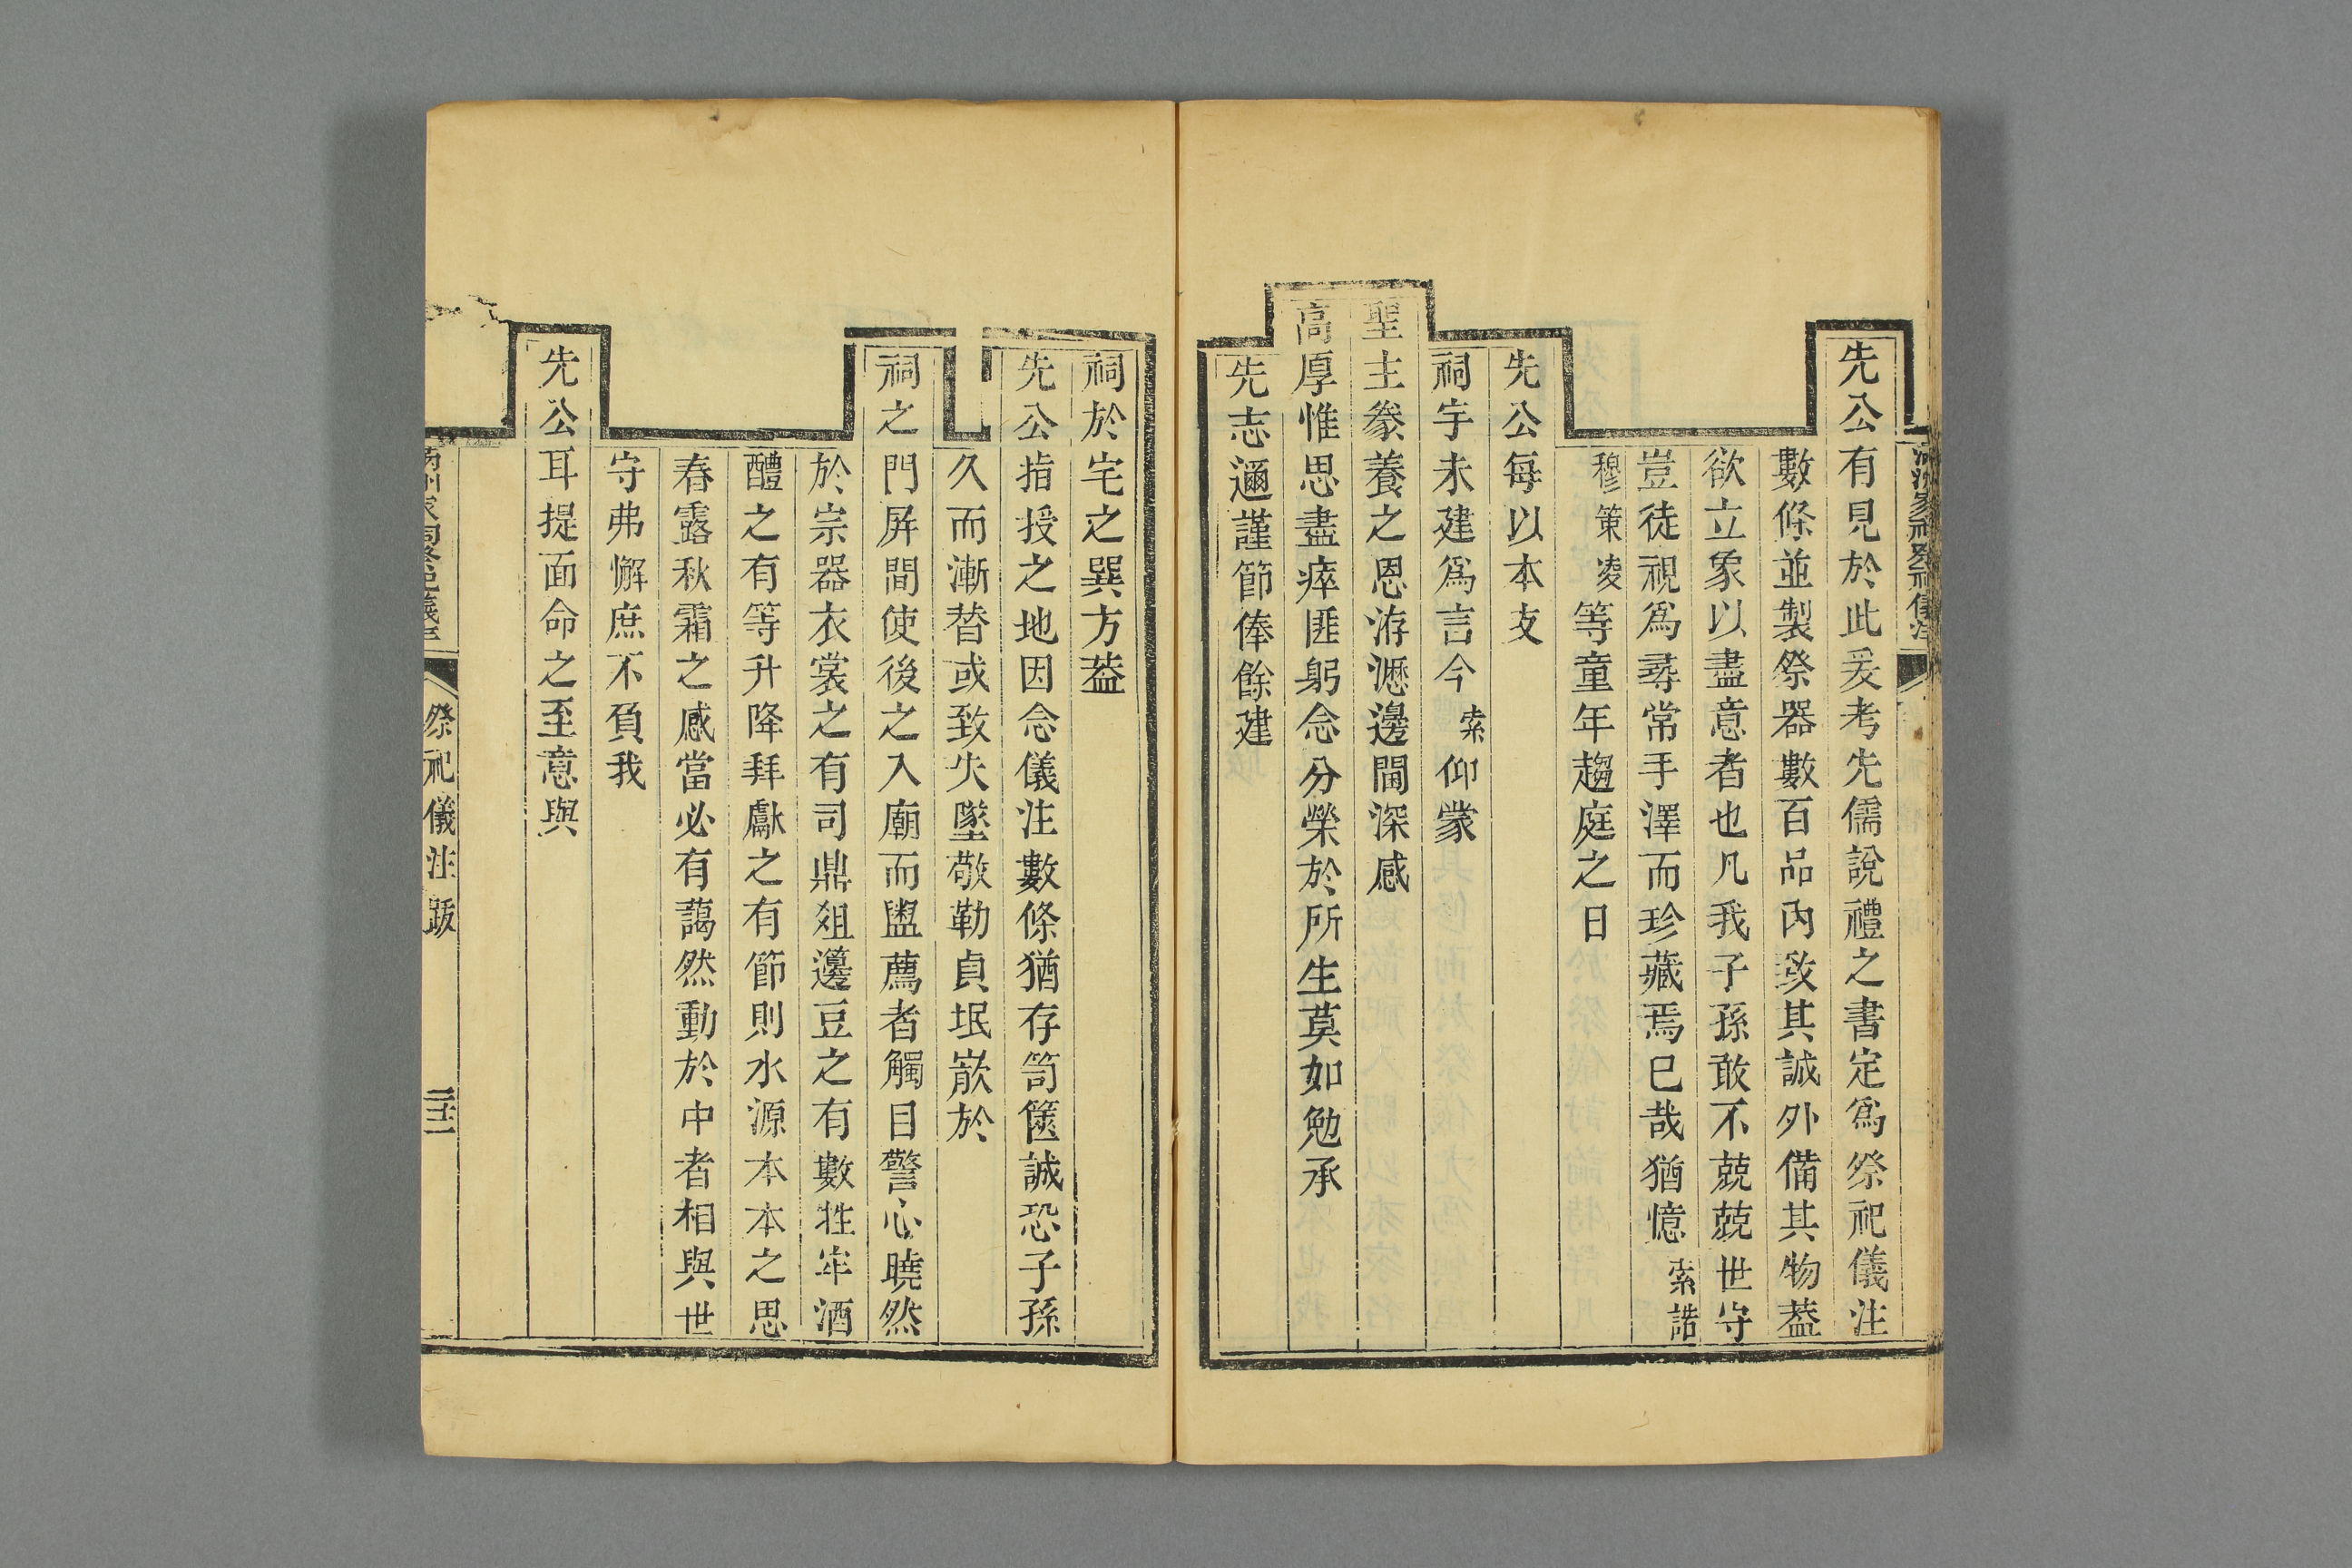 先公有見於此爰考先儒說禮之書定爲祭祀儀注
數條並製祭器數百品內致其誠外備其物葢
欲立象以盡意者也凡我子孫敢不兢兢世守
豈徒視爲尋常手澤而珍藏焉巳哉猶憶索諾
穆策凌等童年趨庭之日
先公每以本支
祠宇未建爲言今索仰蒙
聖主豢養之恩洊歷邊閫深感
高厚惟思盡瘁匪躬念分榮於所生莫如勉承
先志邇謹節俸餘建
祠於宅之巽方葢
先公指授之地因念儀注數條猶存笥篋誠恐子孫
久而漸替或致失墜敬勒貞珉嵌於
祠之門屏間使後之入廟而盥薦者觸目警心曉然
於宗器衣裳之有司鼎俎籩豆之有數牲牢酒
醴之有等升降拜獻之有節則水源本本之思
春露秋霜之感當必有藹然動於中者相與世
守弗懈庶不負我
先公耳提面命之至意與
祭祀儀注 跋